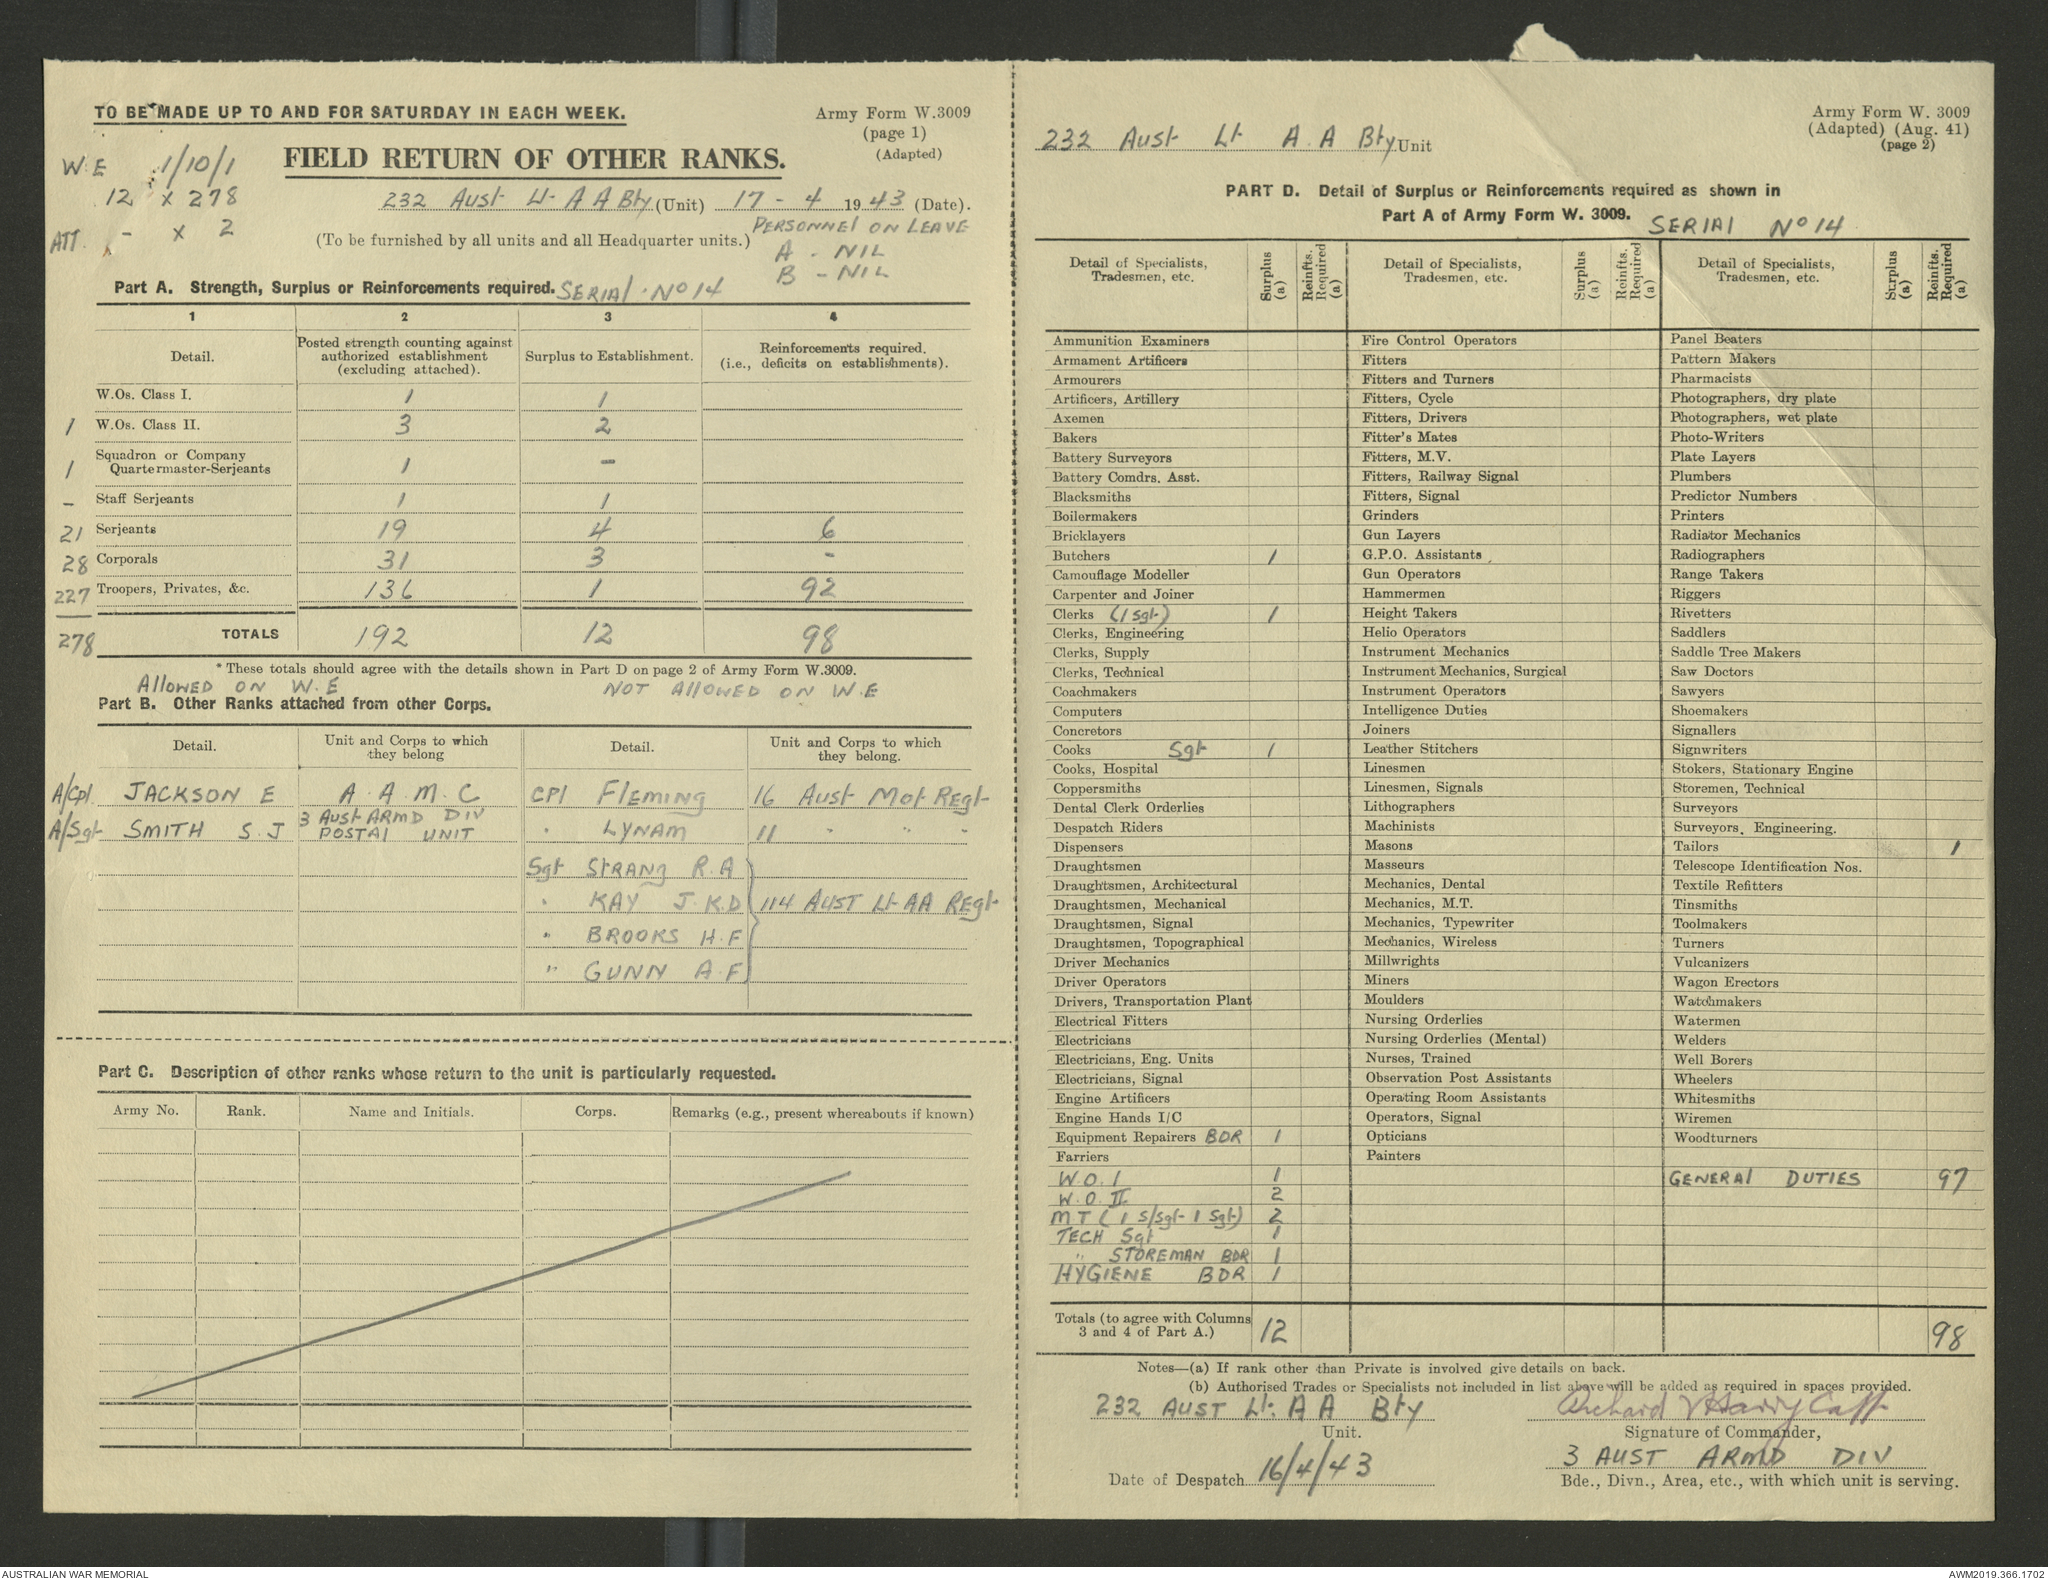 TO BE MADE UP TO AND FOR SATURDAY IN EACH WEEK.
Army Form W.3009
(page 1)
(Adapted)
W.E 1/10/1
12 x 278
ATT. - x 2
FIELD RETURN OF OTHER RANKS.
232 Aust Lt A A Bty (Unit) 17 - 4 1943 (Date).
(To be furnished by all units and all Headquarter units.)
PERSONNEL ON LEAVE
A - NIL
B - NIL
Part A. Strength, Surplus or Reinforcements required. SERIAL No 14
1 2 3 4
Detail. Posted strength counting against authorized establishment (excluding attached). Surplus to Establishment. Reinforcements required. (i.e., deficits on establishments).
W.Os. Class I. 1 1
1 W.Os. Class II. 3 2
1 Squadron or Company Quartermaster-Serjeants 1 -
- Staff Serjeants 1 1
21 Serjeants 19 4 6
28 Corporals 31 3 -
227 Troopers, Privates, &c. 136 1 92
278 TOTALS 192 12 98
* These totals should agree with the details shown in Part D on page 2 of Army Form W.3009.
ALLOWED ON W.E NOT ALLOWED ON W.E
Part B. Other Ranks attached from other Corps.
Detail. Unit and Corps to which they belong Detail. Unit and Corps to which they belong.
A/Cpl JACKSON E A.A.M.C CPl FLEMING 16 Aust Mot Regt
A/Sgt SMITH S.J 3 Aust ARMD DIV POSTAL UNIT " LYNAM 11 " " "
Sgt STRANG R.A
" KAY J.K.D 114 AUST Lt AA REgt
" BROOKS H.F
" GUNN A.F
Part C. Description of other ranks whose return to the unit is particularly requested.
Army No. Rank. Name and Initials. Corps. Remarks (e.g., present whereabouts if known)
Army Form W. 3009
(Adapted) (Aug. 41)
(page 2)
232 Aust Lt A.A Bty Unit
PART D. Detail of Surplus or Reinforcements required as shown in
Part A of Army Form W. 3009.
SERIAL No 14
Detail of Specialists, Tradesmen, etc. Surplus (a) Reinfts. Required (a) Detail of Specialists, Tradesmen, etc. Surplus (a) Reinfts. Required (a) Detail of Specialists, Tradesmen, etc. Surplus (a) Reinfts. Required (a)
Ammunition Examiners
Armament Artificers
Armourers
Artificers, Artillery
Axemen
Bakers
Battery Surveyors
Battery Comdrs. Asst.
Blacksmiths
Boilermakers
Bricklayers
Butchers 1
Camouflage Modeller
Carpenter and Joiner
Clerks (1 Sgt) 1
Clerks, Engineering
Clerks, Supply
Clerks, Technical
Coachmakers
Computers
Concretors
Cooks Sgt 1
Cooks, Hospital
Coppersmiths
Dental Clerk Orderlies
Despatch Riders
Dispensers
Draughtsmen
Draughtsmen, Architectural
Draughtsmen, Mechanical
Draughtsmen, Signal
Draughtsmen, Topographical
Driver Mechanics
Driver Operators
Drivers, Transportation Plant
Electrical Fitters
Electricians
Electricians, Eng. Units
Electricians, Signal
Engine Artificers
Engine Hands I/C
Equipment Repairers BDR 1
Farriers
W.O.I 1
W.O.II 2
MT (1 S/Sgt 1 Sgt) 2
TECH Sgt 1
" STOREMAN BDR 1
HYGIENE BDR 1
Fire Control Operators
Fitters
Fitters and Turners
Fitters, Cycle
Fitters, Drivers
Fitter's Mates
Fitters, M.V.
Fitters, Railway Signal
Fitters, Signal
Grinders
Gun Layers
G.P.O. Assistants
Gun Operators
Hammermen
Height Takers
Helio Operators
Instrument Mechanics
Instrument Mechanics, Surgical
Instrument Operators
Intelligence Duties
Joiners
Leather Stitchers
Linesmen
Linesmen, Signals
Lithographers
Machinists
Masons
Masseurs
Mechanics, Dental
Mechanics, M.T.
Mechanics, Typewriter
Mechanics, Wireless
Millwrights
Miners
Moulders
Nursing Orderlies
Nursing Orderlies (Mental)
Nurses, Trained
Observation Post Assistants
Operating Room Assistants
Operators, Signal
Opticians
Painters
Panel Beaters
Pattern Makers
Pharmacists
Photographers, dry plate
Photographers, wet plate
Photo-Writers
Plate Layers
Plumbers
Predictor Numbers
Printers
Radiator Mechanics
Radiographers
Range Takers
Riggers
Rivetters
Saddlers
Saddle Tree Makers
Saw Doctors
Sawyers
Shoemakers
Signallers
Signwriters
Stokers, Stationary Engine
Storemen, Technical
Surveyors
Surveyors, Engineering.
Tailors 1
Telescope Identification Nos.
Textile Refitters
Tinsmiths
Toolmakers
Turners
Vulcanizers
Wagon Erectors
Watchmakers
Watermen
Welders
Well Borers
Wheelers
Whitesmiths
Wiremen
Woodturners
GENERAL DUTIES 97
Totals (to agree with Columns 3 and 4 of Part A.) 12 98
Notes—(a) If rank other than Private is involved give details on back.
(b) Authorised Trades or Specialists not included in list above will be added as required in spaces provided.
232 AUST Lt. A A Bty
Unit.
Signature of Commander,
3 AUST ARMD DIV
Date of Despatch 16/4/43
Bde., Divn., Area, etc., with which unit is serving.
AUSTRALIAN WAR MEMORIAL
AWM2019.366.1702